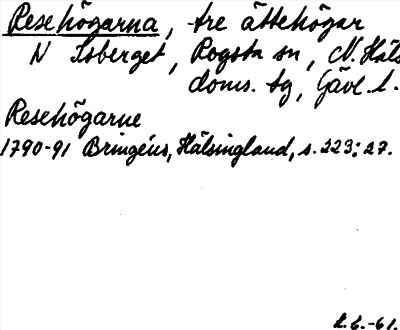 Resehögarna, tre ättehögar
N Isberget, Rogsta sn, N. Häls
doms. sg, Gävl. l.
Resehögarne
1790-91 Bringéus, Hälsingland, s. 223: 27.
-61.